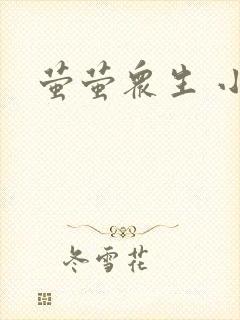 萤萤众生 小
冬雪花